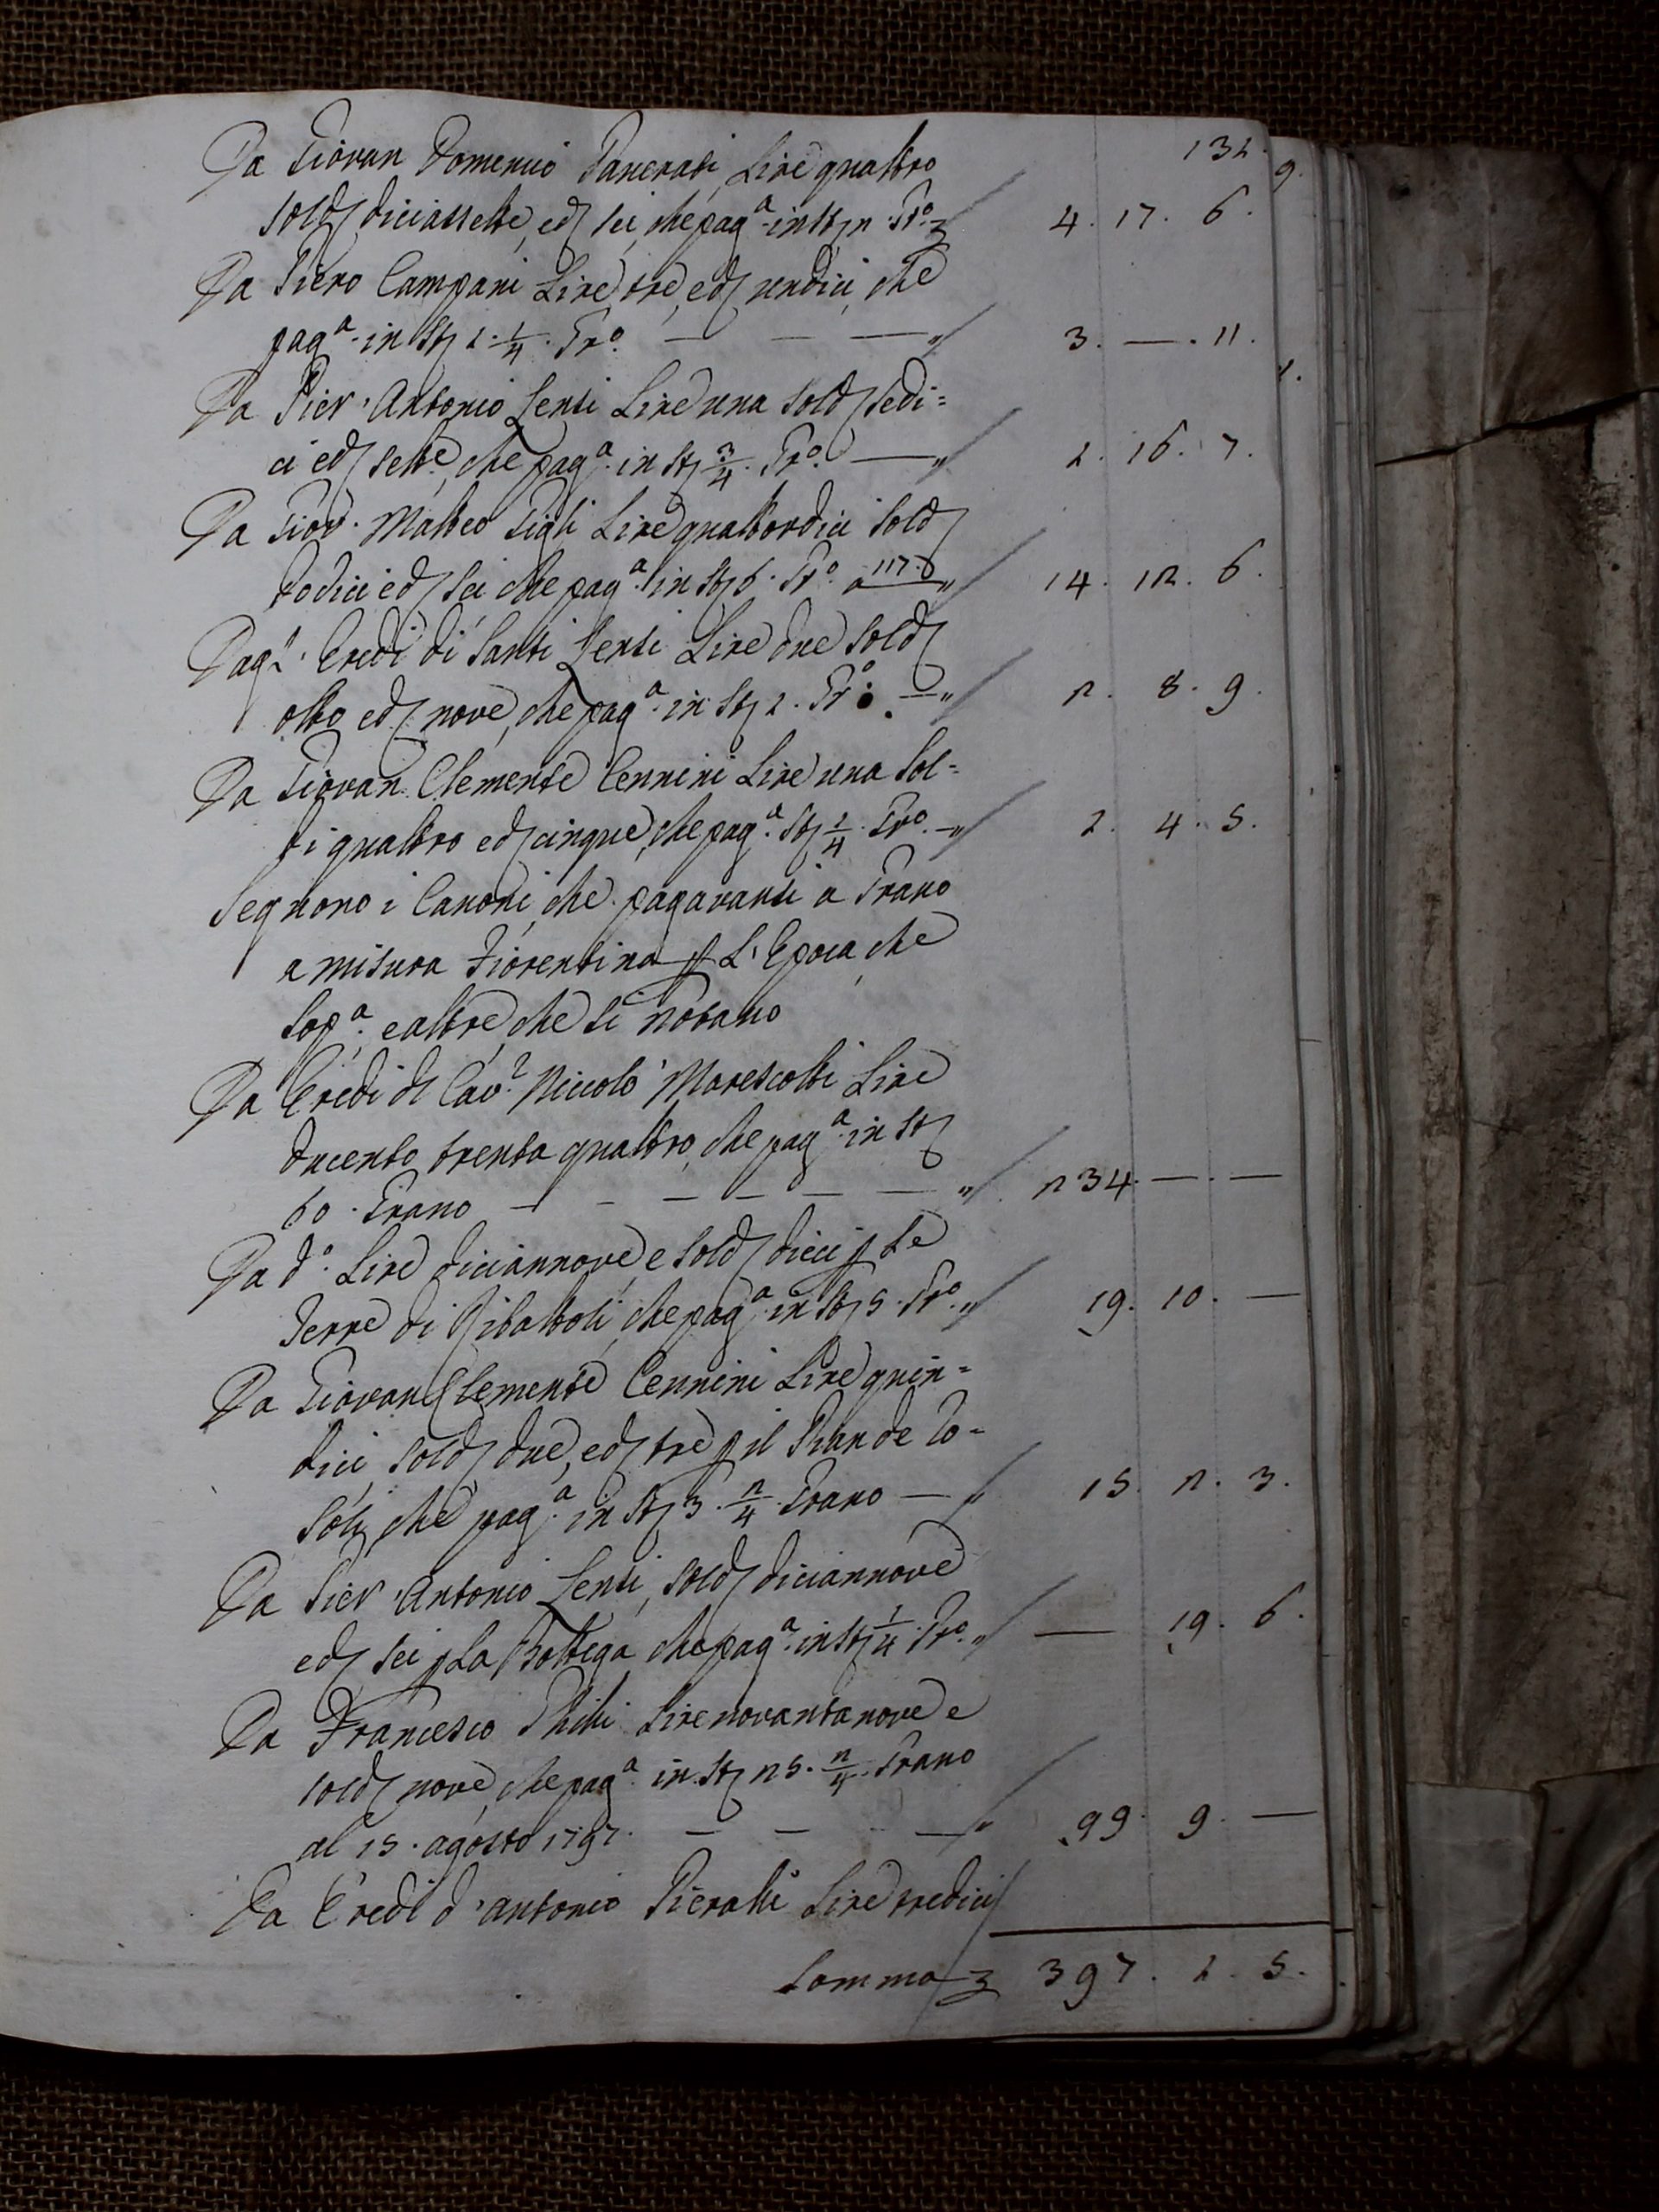 131.
Da Giovan Domenico Pancrasi Lire quattro
sold diciassette, e d sei, che pag.a in st 2 Gr.o 4. 17. 6.
Da Piero Campani Lire tre, e d undici, che
pag.a in St 1. 1/4. Gr.o — — — 3. — . 11.
Da Pier' Antonio Lensi Lire una Sold Sedi=
ci e d sette, che pag.a in St 3/4. Gr.o — 1. 16. 7.
Da Giov. Matteo Gigli Lire quattordici Sold
dodici e d Sei che pag.a in St 6. Gr.o a 117.6 14. 12. 6.
Dagl' Eredi di Santi Lensi Lire due Sold
otto e d nove, che pag.a in St 1. Gr.o — 2. 8. 9.
Da Giovan Clemente Cennini Lire una Sol=
di quattro e d cinque, che pag.a St 2/4. Gr.o — 1. 4. 5.
Seguono i Canoni che pagavansi a Grano
a misura Fiorentina p L'Epoca che
Sop.a e altre che si notano
Da Eredi d Cav.r Niccolò Marescotti Lire
ducento trenta quattro, che pag.a in St
60. Grano — — — — — — 234. — . —
Da d.o Lire diciannove e sold dieci p Le
Terre di Ribattoli, che pag.a in St 5. Gr.o 19. 10. —
Da Giovan Clemente Cennini Lire quin=
dici sold due, e d tre p il Pian de To=
soli, che pag.a in St 3. 2/4. Grano — 15. 2. 3.
Da Pier' Antonio Lensi, sold diciannove
e d sei p La Bottega che pag.a in St 1/4. Gr.o — 19. 6.
Da Francesco Lire novantanove e
sold nove, che pag.a in St 25. 2/4. Grano
al 15. agosto 1797. — — — 99. 9. —
Da Eredi d'antonio Pieralli Lire tredici
Somma 397. 1. 5.